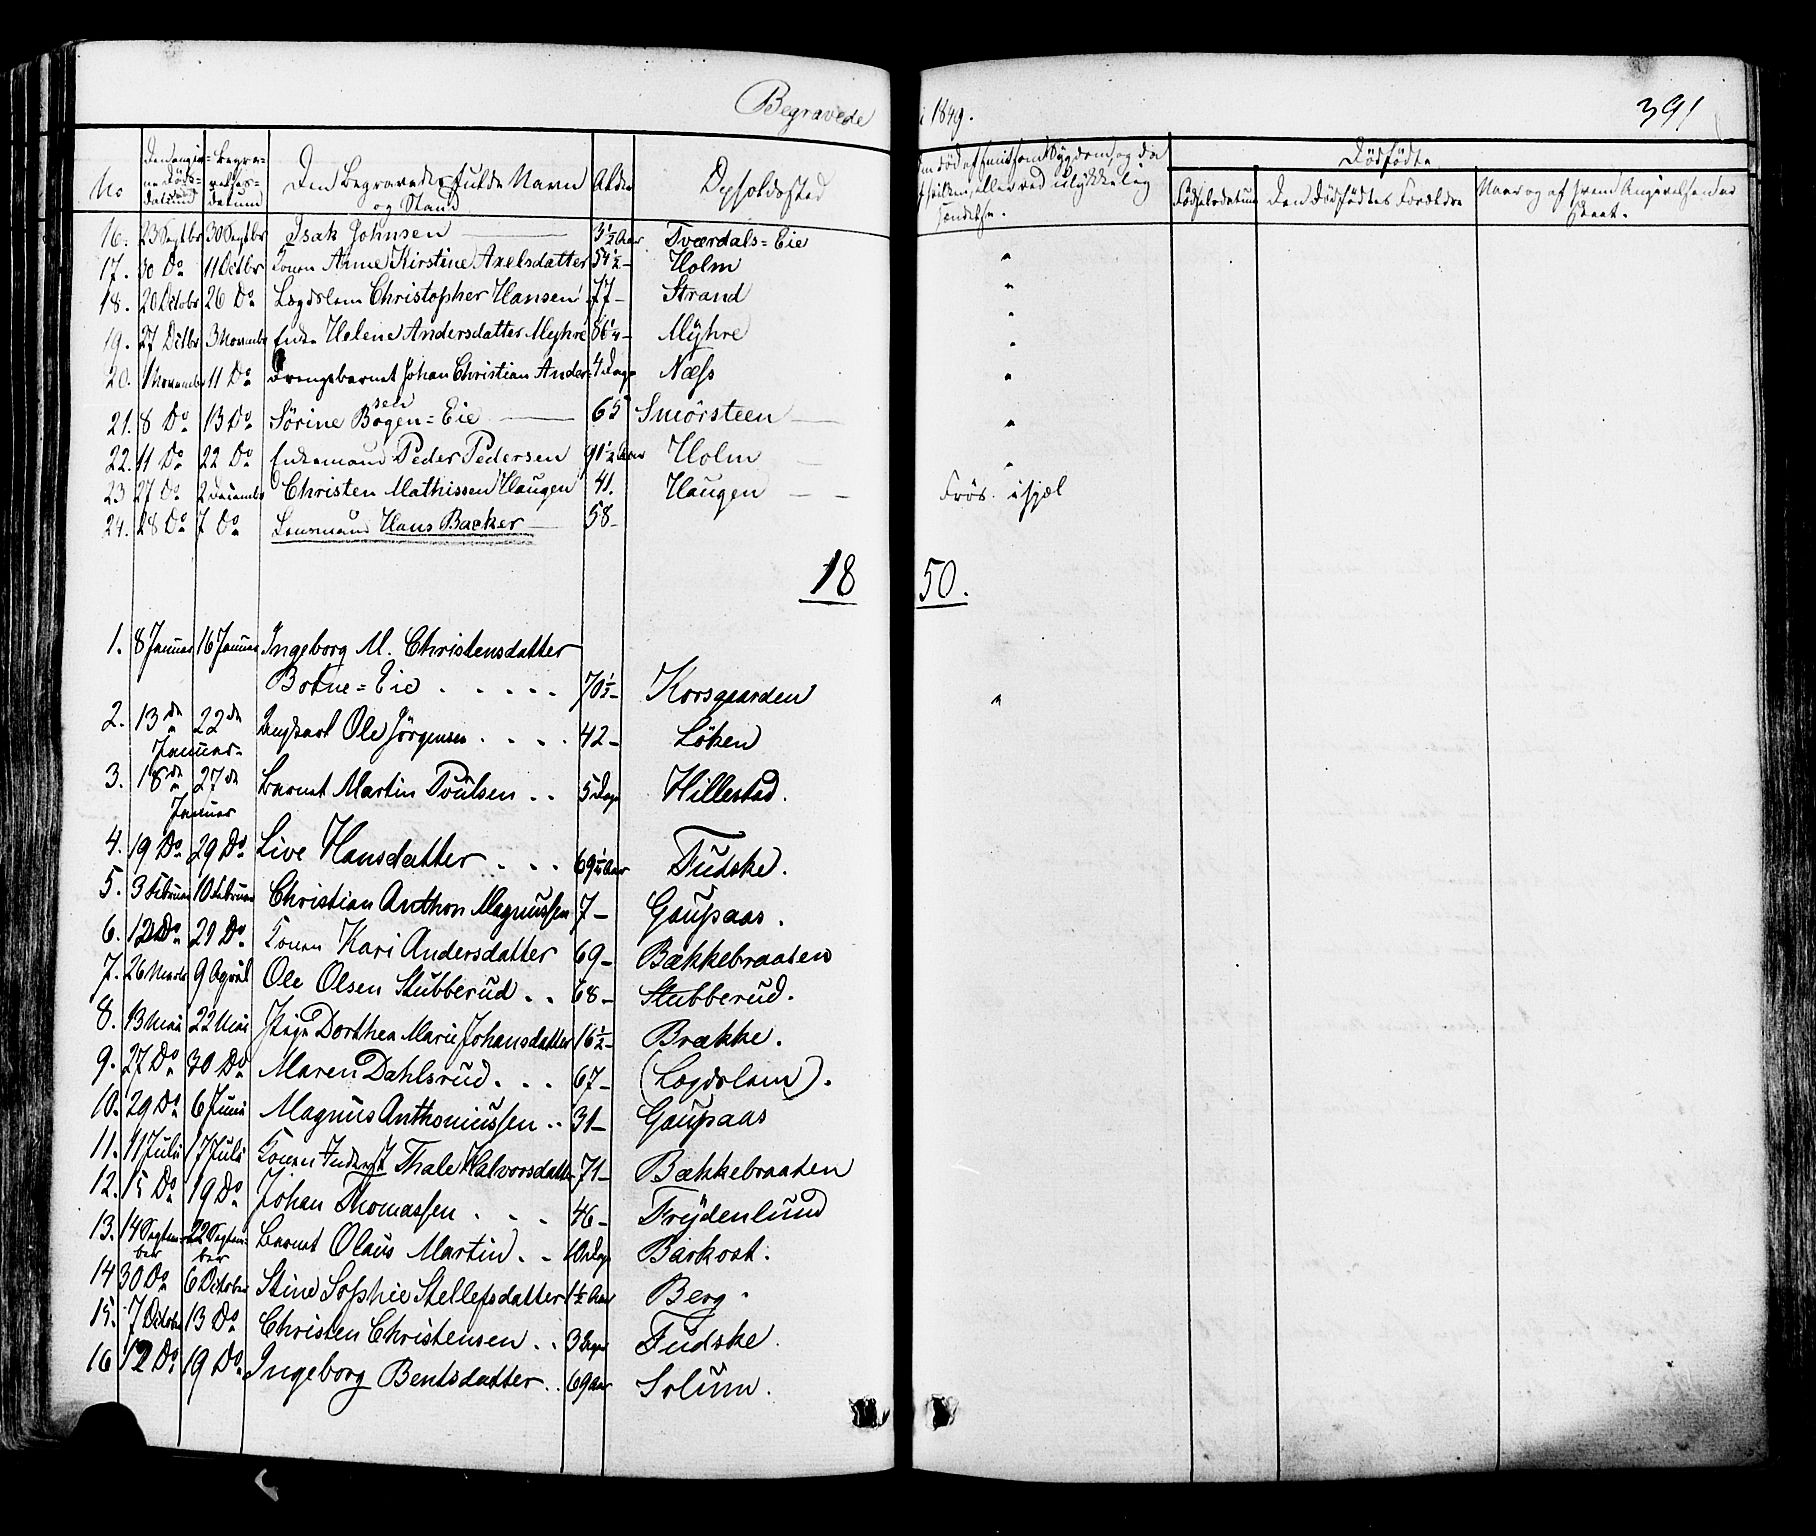 Begravede i 1849. 391
No Den angivne Dödsdatum Begravelsesdatum Den Begravedes fulde Navn og Stand Alder Opholdssted Dödfödte
Födselsdatum Den Dödfödtes Forældre
16. 23 Septbr 30 Septbr Isak Johnsen 3 1/2 Aar Tværdals=Eie
17. 30 Do 11 Octbr Konen Anne Kirstine Axelsdatter 54 1/2 - Holm "
18. 20 Octobr 26 Do Lægdslem Christopher Hansen 77 - Strand "
19. 27 Octbr 3 Novembr Enke Helene Andersdatter Myhre 86 1/4 - Myhre "
20. 1 Novembr 11 Do Drengebarnet Johan Christian Anders= 4 Dage Næss "
sen
21. 8 Do 13 Do Sörine Bogen=Eie 65 Smörsteen "
22. 11 Do 22 Do Enkemand Peder Pedersen 91 1/2 Aar Holm "
23 27 Do 2 Decembr Christen Mathissen Haugen 41. Haugen Frös ihjel
24. 28 Do 7 Do Lensmand Hans Backer 58 -
1850.
1. 8 Januar 16 Januar Ingeborg M. Christensdatter
Botne=Eie 70 1/2 - Korsgaarden "
2. 13de 22de Ole Jörgensen 42 - Löken
Januar
3. 18de 27de Barnet Martin Poulsen 5 Dage Hillestad.
Januar
4. 19 Do 29 Do Live Hansdatter 69 1/2 Aar Fudske.
5. 3 Februar 10 Februar Christian Anthon Magnussen 7 - Gaupaas.
6. 12 Do 29 Do Konen Kari Andersdatter 69 - Bækkebraaten
7. 26 Marts 9 April Ole Olsen Stubberud 68 - Stubberud.
8. 13 Mai 22 Mai Pige Dorthea Marie Johansdatter 16 1/2 - Brække.
9. 27 Do 30 Do Maren Dahlsrud 67 - (Lægdslem).
10. 29 Do 6 Juni Magnus Anthoniussen 31 - Gaupaas
11. 11 Juli 17 Juli Konen Thale Halvorsdatter 71 - Bækkebraaten
12. 15 Do 19 Do Johan Thomassen 46 - Frydenlund
13. 14 Septem- 22 Septem- Barnet Olaus Martin 10 Dage Barkost.
ber ber
14 30 Do 6 October Stine Sophie Stellefsdatter 1 1/2 Aar Berg.
15. 7 Octobr 13 Do Christen Christensen 3 Dage Fudske.
16 12 Do 19 Do Ingeborg Bentsdatter 69 Aar Solum.